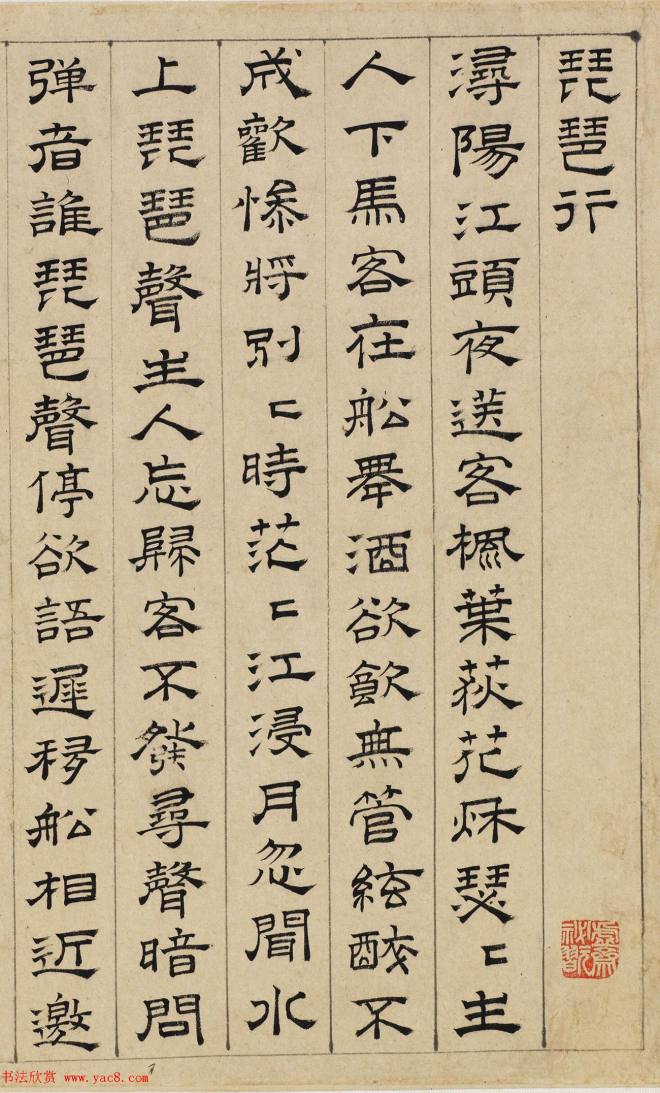 琵琶行
潯陽江頭夜送客楓葉荻花秌瑟〻主
人下馬客在船舉酒欲飲無管絃醉不
成歡慘將別〻時茫〻江浸月忽聞水
上琵琶聲主人忘歸客不發尋聲暗問
弹者誰琵琶聲停欲語遲移船相近邀
书法欣赏 www.yac8.com